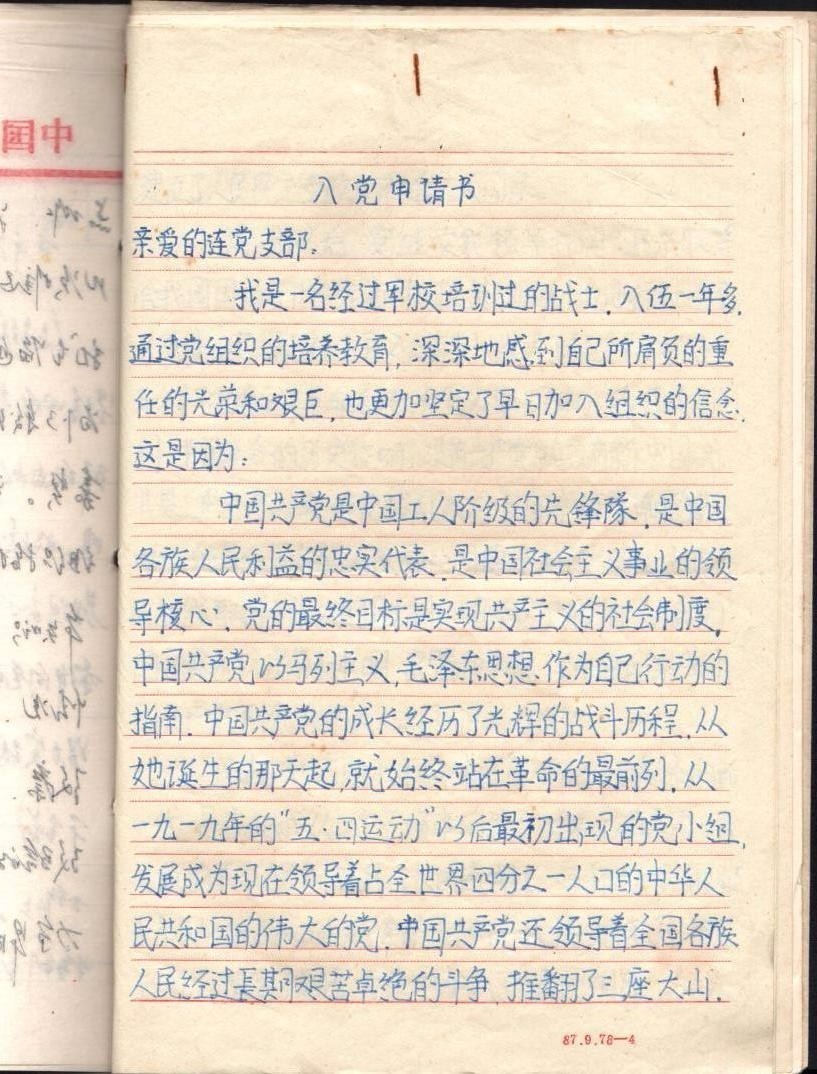 中国
入党申请书
亲爱的连党支部:
我是一名经过军校培训过的战士.入伍一年多.
通过党组织的培养教育,深深地感到自己所肩负的重
任的光荣和艰巨,也更加坚定了早日加入组织的信念.
这是因为:
中国共产党是中国工人阶级的先鋒隊,是中国
各族人民利益的忠实代表,是中国社会主义事业的领
导核心.党的最终目标是实现共产主义的社会制度。
中国共产党以马列主义,毛泽东思想.作为自己行动的
指南.中国共产党的成长经历了光辉的战斗历程,从
她诞生的那天起,就始终站在革命的最前列.从
一九一九年的"五·四运动"以后最初出现的党小组,
发展成为现在领导着占全世界四分之一人口的中华人
民共和国的伟大的党.中国共产党还领导着全国各族
人民经过長期艰苦卓绝的斗争,推翻了三座大山.
87.9.78—4